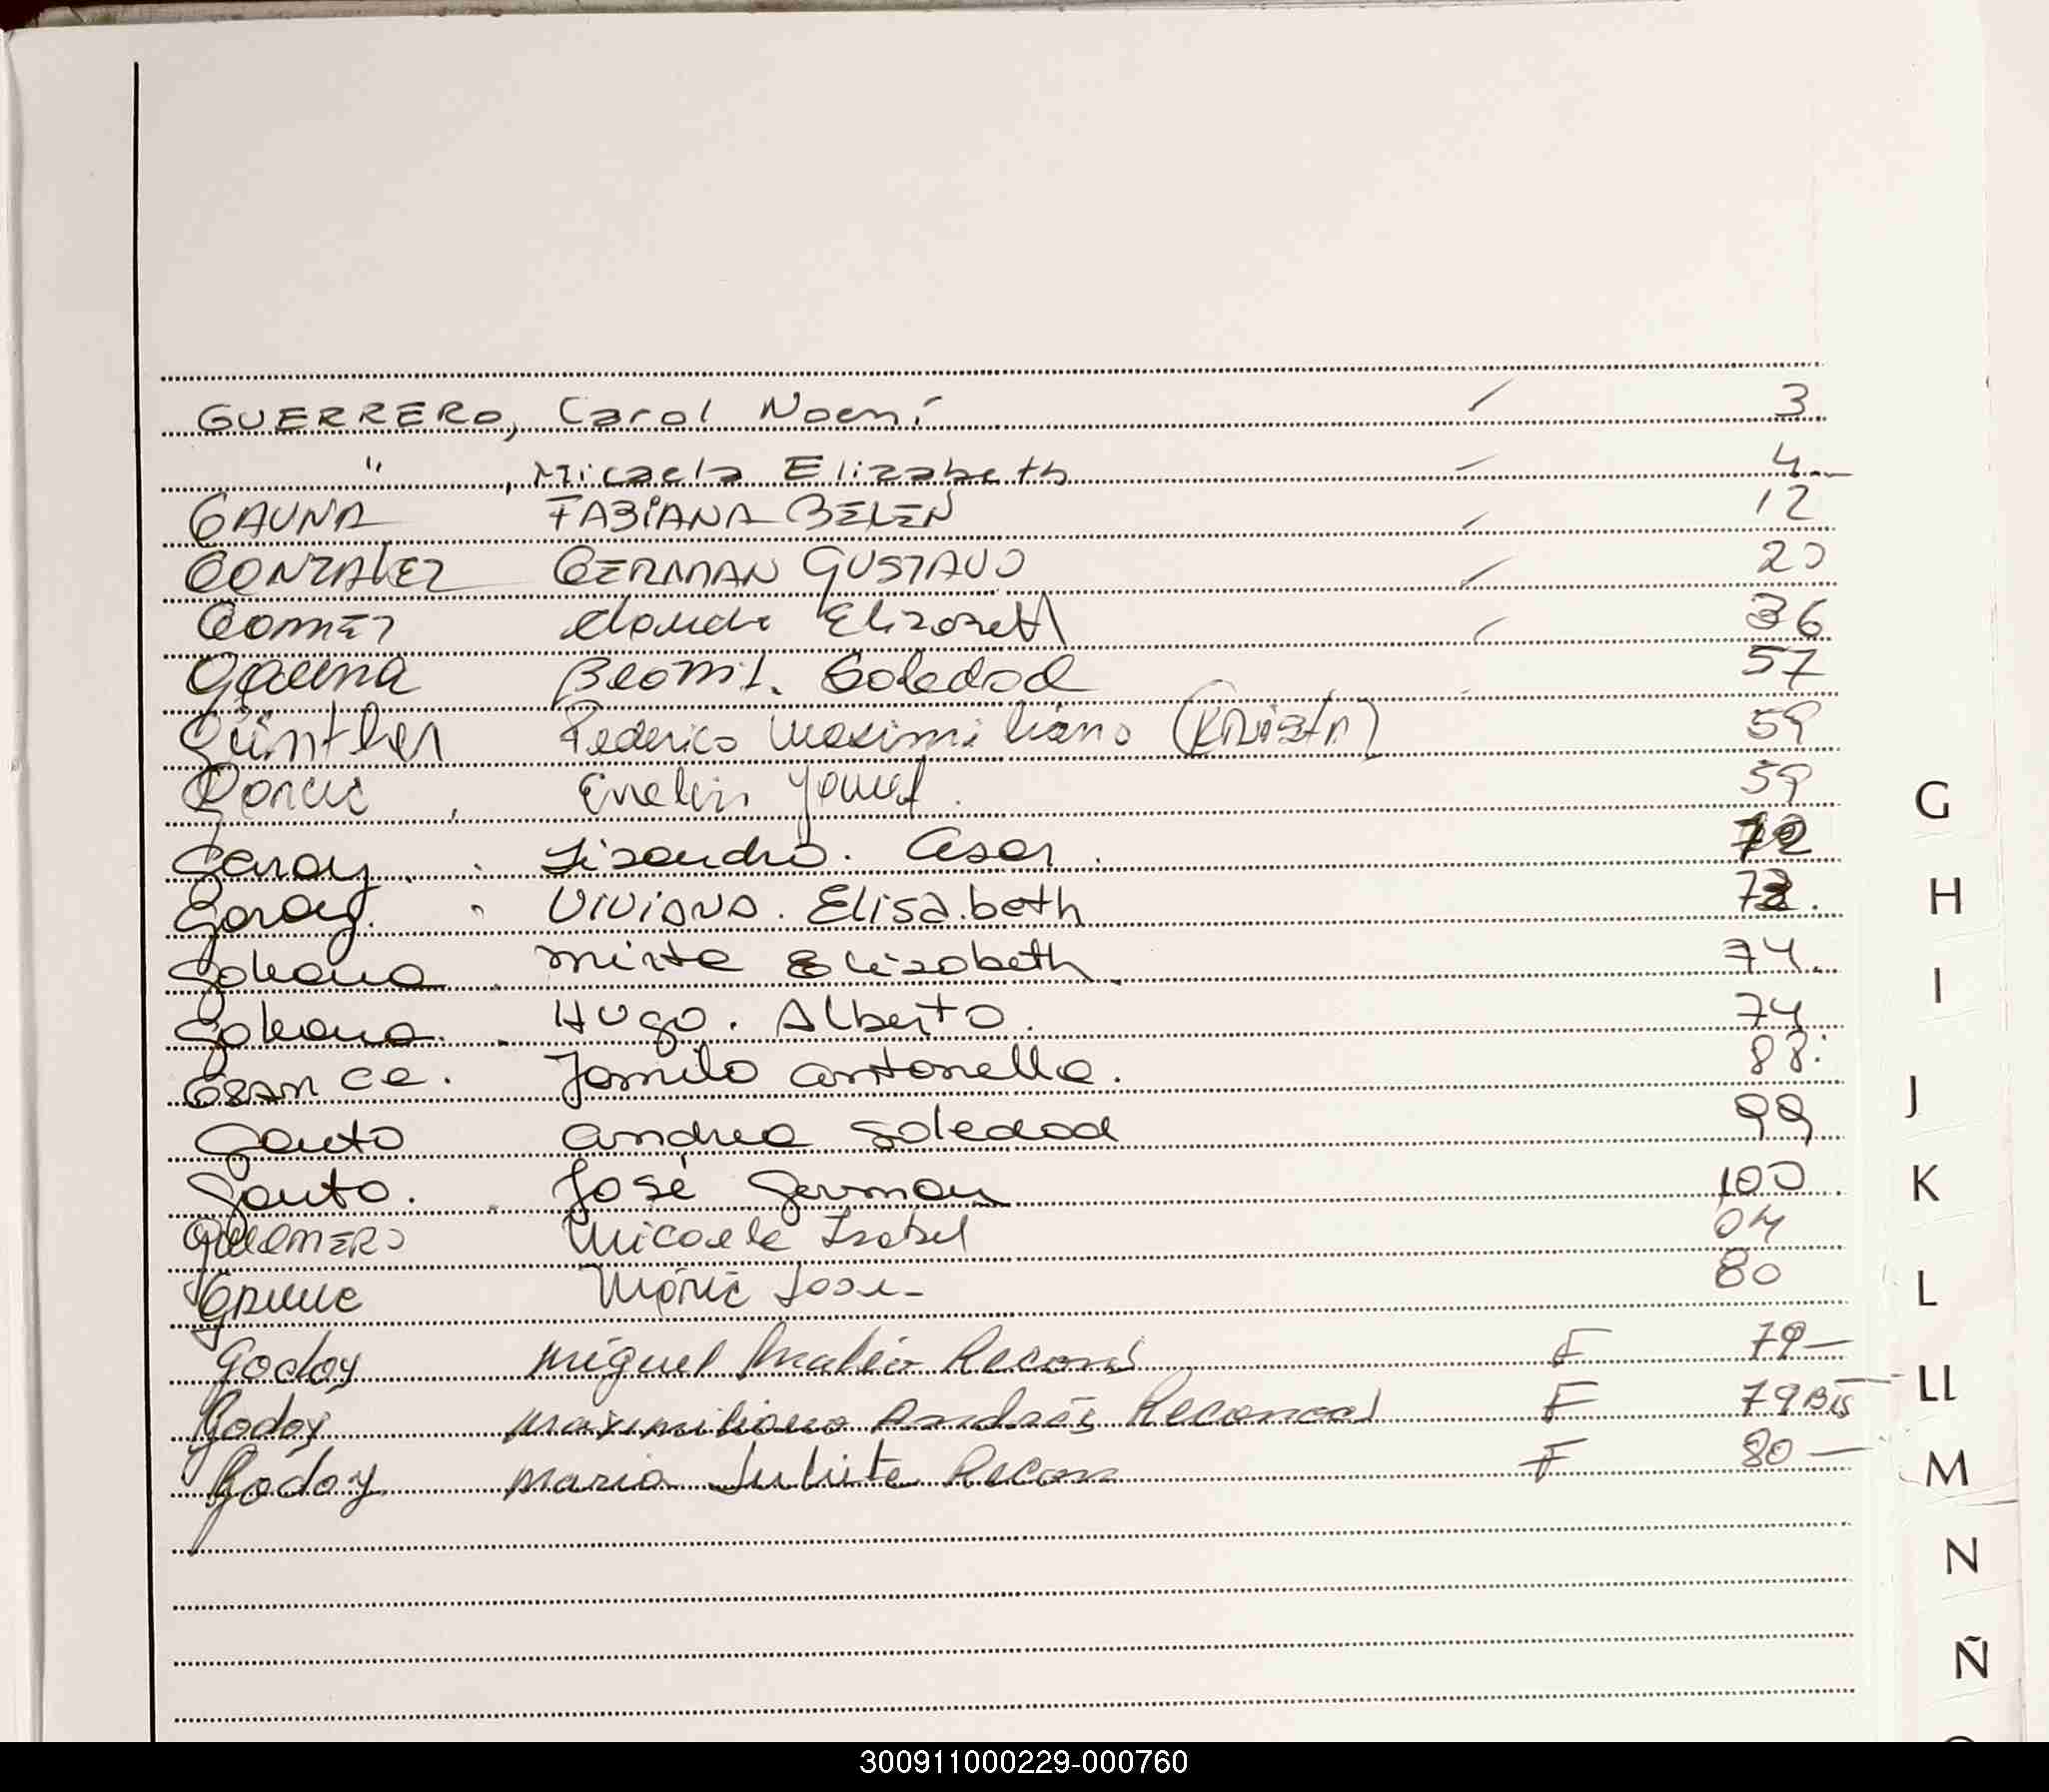 GUERRERO, Carol Noemí / 3
" , Micaela Elizabeth / 4
GAUNA FABIANA BELEN / 12
GONZALEZ GERMAN GUSTAVO / 20
GOMEZ Claudia Elizabeth / 36
Gauna Soledad 57
Günther Federico Maximiliano 59
Evelin 59
Garay. Lisandro. Cesar. 72
Garay. Viviana. Elisabeth 72.
Galeano. Mirta Elizabeth. 74.
Galeano. Hugo. Alberto. 74
Jamila Antonella. 88.
Gauto Andrea Soledad 99
Gauto. José German 100
Micaela Isabel 04
María José 80
Godoy Miguel F 79 -
Godoy Maximiliano Andrés F 79 Bis
Godoy Maria F 80 -
G
H
I
J
K
L
Ll
M
N
Ñ
300911000229-000760